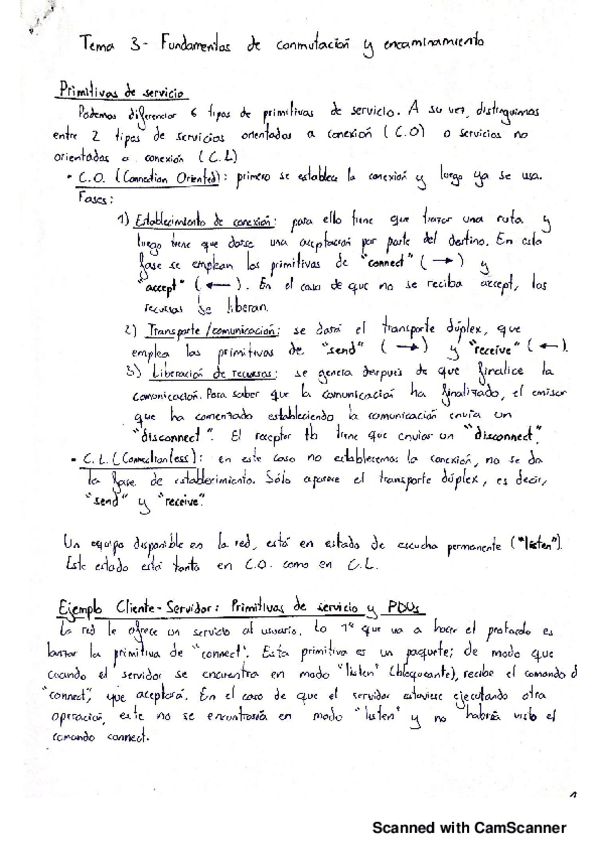 Tema 3- Fundamentos de conmutación y encaminamiento
Primitivas de servicio
Podemos diferenciar 6 tipos de primitivas de servicio. A su vez, distinguimos
entre 2 tipos de servicios orientados a conexión (C.O) o servicios no
orientados a conexión (C.L)
• C.O. (Connection Oriented): primero se establece la conexión y luego ya se usa.
Fases:
1) Establecimiento de conexión: para ello tiene que trazar una ruta y
luego tiene que darse una aceptación por parte del destino. En esta
fase se emplean las primitivas de "connect" (→) y
"accept" (←). En el caso de que no se reciba accept, los
recursos se liberan.
2) Transporte/comunicación: se dará el transporte dúplex, que
emplea las primitivas de "send" (→) y "receive" (←).
3) Liberación de recursos: se genera después de que finalice la
comunicación. Para saber que la comunicación ha finalizado, el emisor
que ha comenzado estableciendo la comunicación envía un
"disconnect". El receptor tb tiene que enviar un "disconnect".
• C.L. (Connectionless): en este caso no establecemos la conexión, no se da
la fase de establecimiento. Sólo aparece el transporte dúplex, es decir,
"send" y "receive".
Un equipo disponible en la red, está en estado de escucha permanente ("listen").
Este estado está tanto en C.O. como en C.L.
Ejemplo Cliente-Servidor: Primitivas de servicio y PDUs
La red le ofrece un servicio al usuario. Lo 1º que va a hacer el protocolo es
lanzar la primitiva de "connect". Esta primitiva es un paquete; de modo que
cuando el servidor se encuentra en modo "listen" (bloqueante), recibe el comando d
"connect", que aceptará. En el caso de que el servidor estuviese ejecutando otra
operación, este no se encontraría en modo "listen" y no habría visto el
comando connect.
1
Scanned with CamScanner